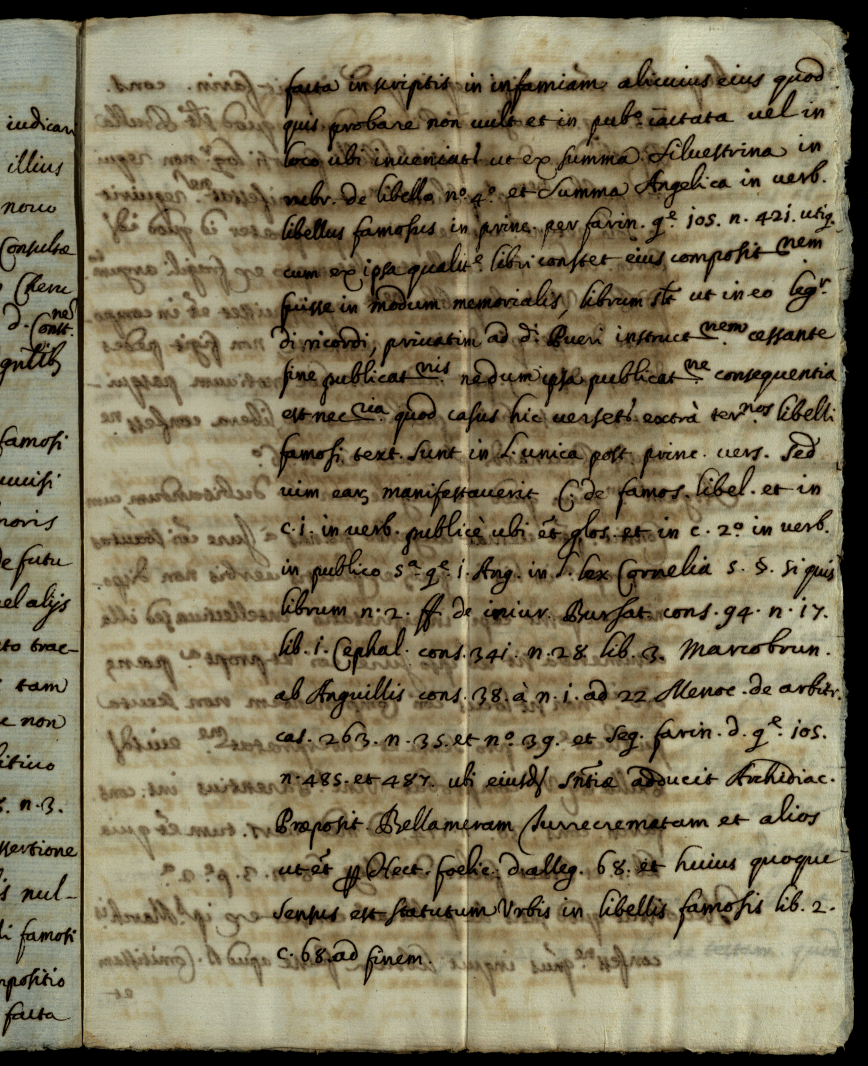 iudican
illius
novo
Consultæ
Cheru
d. Const.nes
famosi
noris
de futu
vel alijs
to trac-
tam
non
n. 3.
ssertione
is nul-
li famosi
mpositio
facta
facta in scriptis in infamiam alicuius eius quod
quis probare non vult et in pub.º iactata vel in
loco ubi inveniat.r ut ex summa Silvestrina in
verbr. de libello nº 4º et Summa Angelica in verb.
libellus famosus in princ. per farin. q.e 105. n. 421. utiq.
cum ex ipsa qualit.e libri constet eius composit.nem
fuisse in modum memorialis, librum s.t ut in eo leg.r
di ricordi, privatim ad d.i Pueri instruct.nem cessante
fine publicat.nis nedum ipsa publicat.ne consequentia
est nec.ria quod casus hic verset.r extrà ter.nos libelli
famosi text. sunt in l. unica post princ. vers. Sed
vim earz manifestaverit C. de famos. libel. et in
c. 1. in verb. publicè ubi ēt glos. et in c. 2º in verb.
in publico 5ª q.e 1. Ang. in l. lex Cornelia 5. §. si quis
librum n. 2. ff. de iniur. Bursat. cons. 94. n. 17.
lib. 1. Cephal. cons. 341. n. 28 lib. 3. Marcobrun.
ab Anguillis cons. 38. à n. 1. ad 22 Menoc. de arbitr.
cas. 263. n. 35. et nº 39. et seq. farin. d. q.e 105.
n. 485. et 487. ubi eiusd. s̄ntiæ adducit Archidiac.
Præposit. Bellameram Turrecrematam et alios
ut ēt p Hect. foelic. d. alleg. 68. et huius quoque
sensus est statutum Urbis in libellis famosis lib. 2.
c. 68. ad finem.